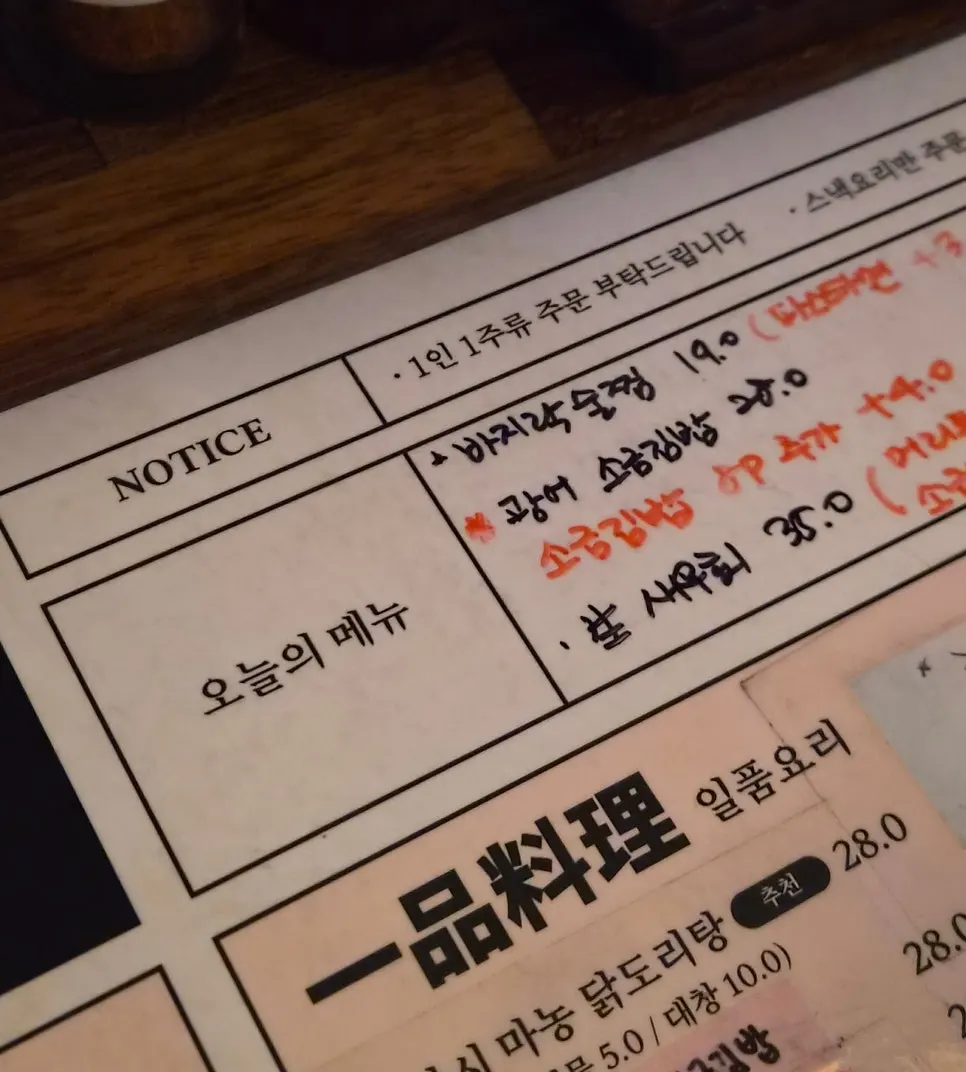 NOTICE
· 1인 1주류 주문 부탁드립니다
· 스낵요리만 주문
오늘의 메뉴
바지락술찜 19.0
* 광어 소금김밥 24.0
소금김밥 4P 추가 +4.0
· 35.0
一品料理 일품요리
시 마농 닭도리탕 추천 28.0
5.0 / 대창 10.0)
28.0
김밥